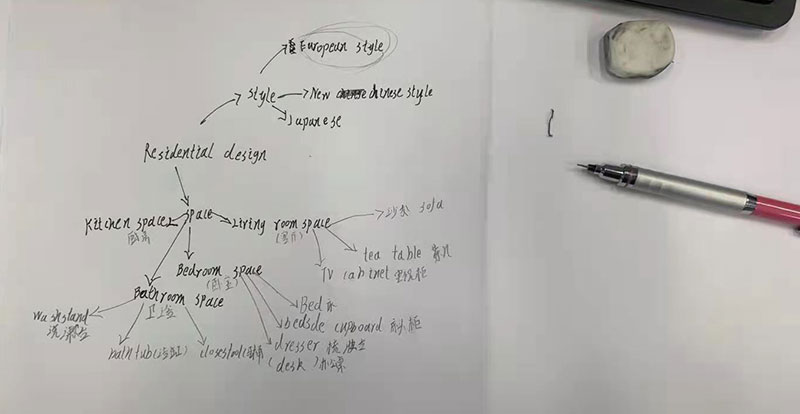 European style
style
New chinese style
Japanese
Residential design
space
Kitchen space
厨房
Living room space
(客厅)
沙发 sofa
tea table 茶几
TV cabinet 电视柜
Bedroom space
(卧室)
Bathroom space
卫生间
washsland
洗漱台
bathtub(浴缸)
closestool(
Bed 床
bedsde cupboard 床头柜
dresser 梳妆台
(desk)办公桌